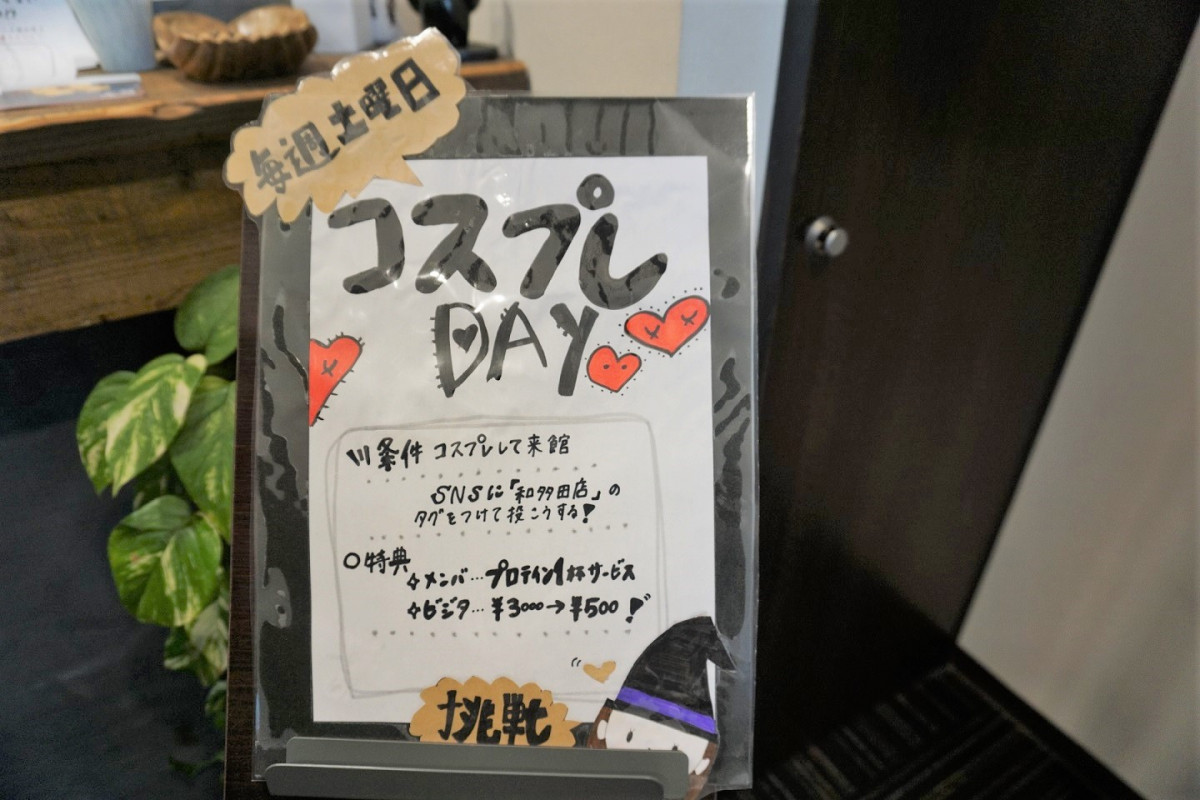 毎週土曜日
コスプレ
DAY
条件 コスプレして来館
SNSに「和多田店」の
タグをつけて投こうする!
○特典
メンバ…プロテイン1杯サービス
ビジタ…¥3000→¥500!
挑戦